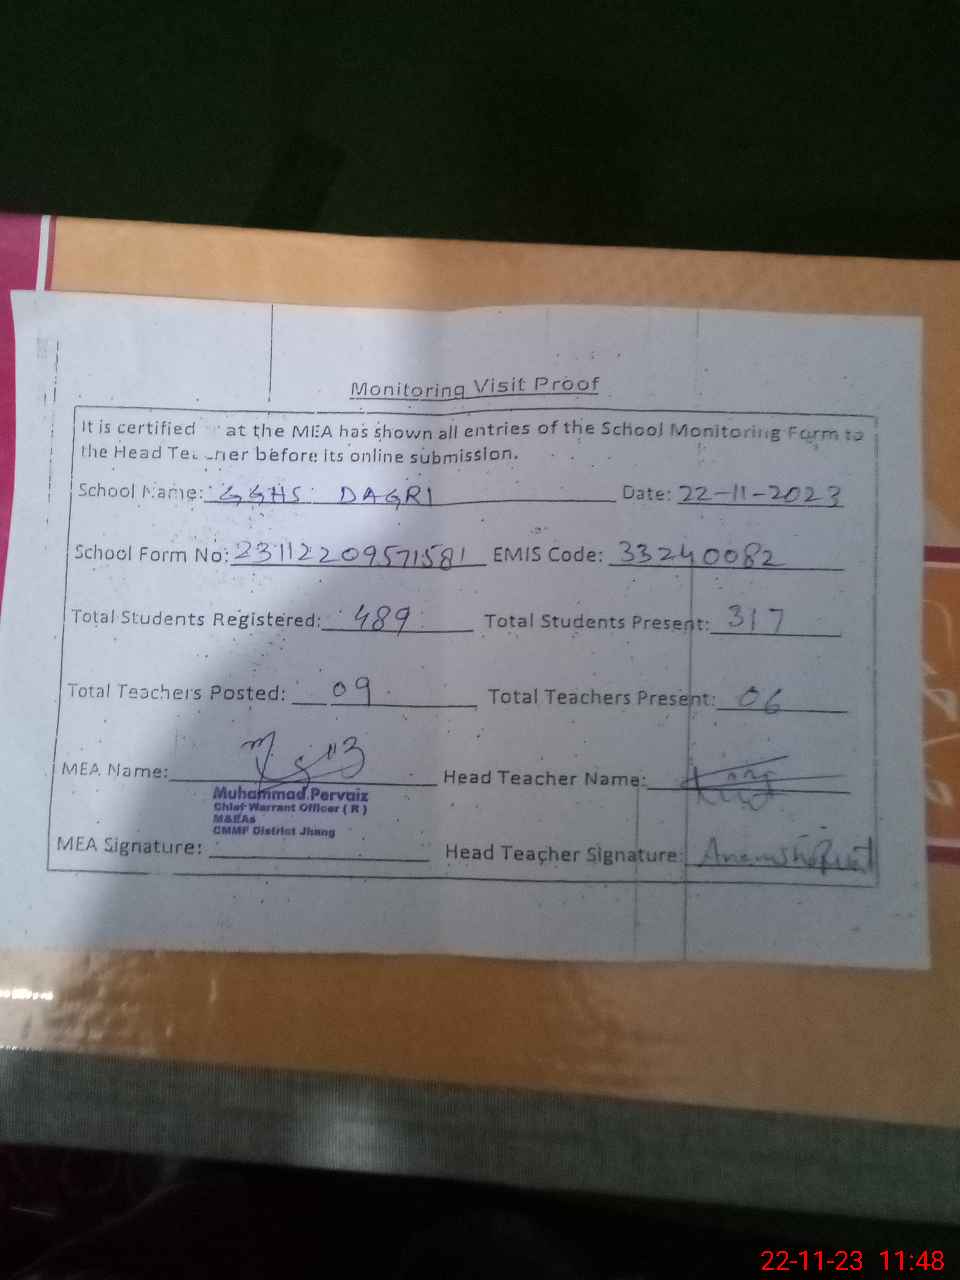 Monitoring Visit Proof
It is certified at the MEA has shown all entries of the School Monitoring Form to
the Head Teacher before its online submission.
School Name: GGHS DAGRI Date: 22-11-2023
School Form No: 23112209571581 EMIS Code: 33240082
Total Students Registered: 489 Total Students Present: 317
Total Teachers Posted: 09 Total Teachers Present: 06
MEA Name: Head Teacher Name:
Muhammad Pervaiz
Chief Warrant Officer ( R )
M&EAs
CMMF District Jhang
MEA Signature: Head Teacher Signature:
22-11-23 11:48